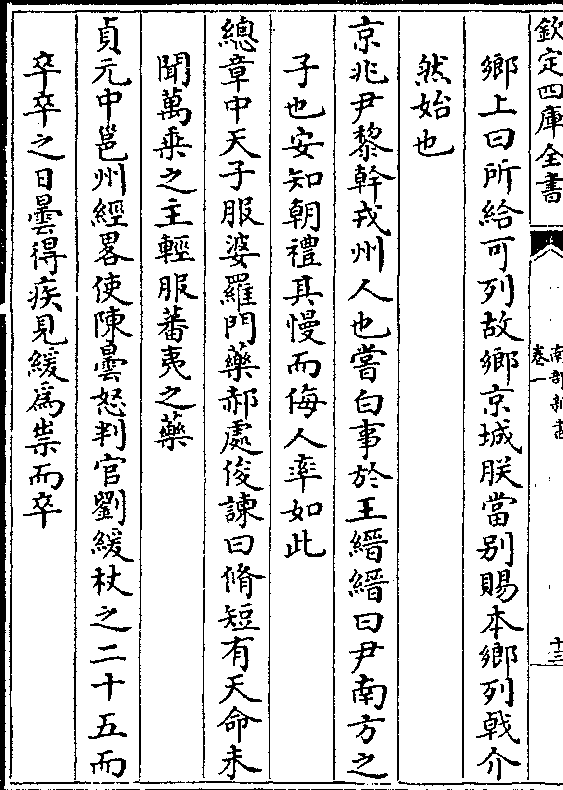 欽定四庫全書
南部新書
卷一
十三
鄉上曰所給可列故鄉京城朕當别賜本鄉列㦸介
然始也
京兆尹黎幹戎州人也嘗白事於王縉縉曰尹南方之
子也安知朝禮其慢而侮人率如此
總章中天子服婆羅門藥郝處俊諫曰脩短有天命未
聞萬乘之主輕服蕃夷之藥
貞元中邕州經畧使陳曇怒判官劉緩杖之二十五而
卒卒之日曇得疾見緩為祟而卒